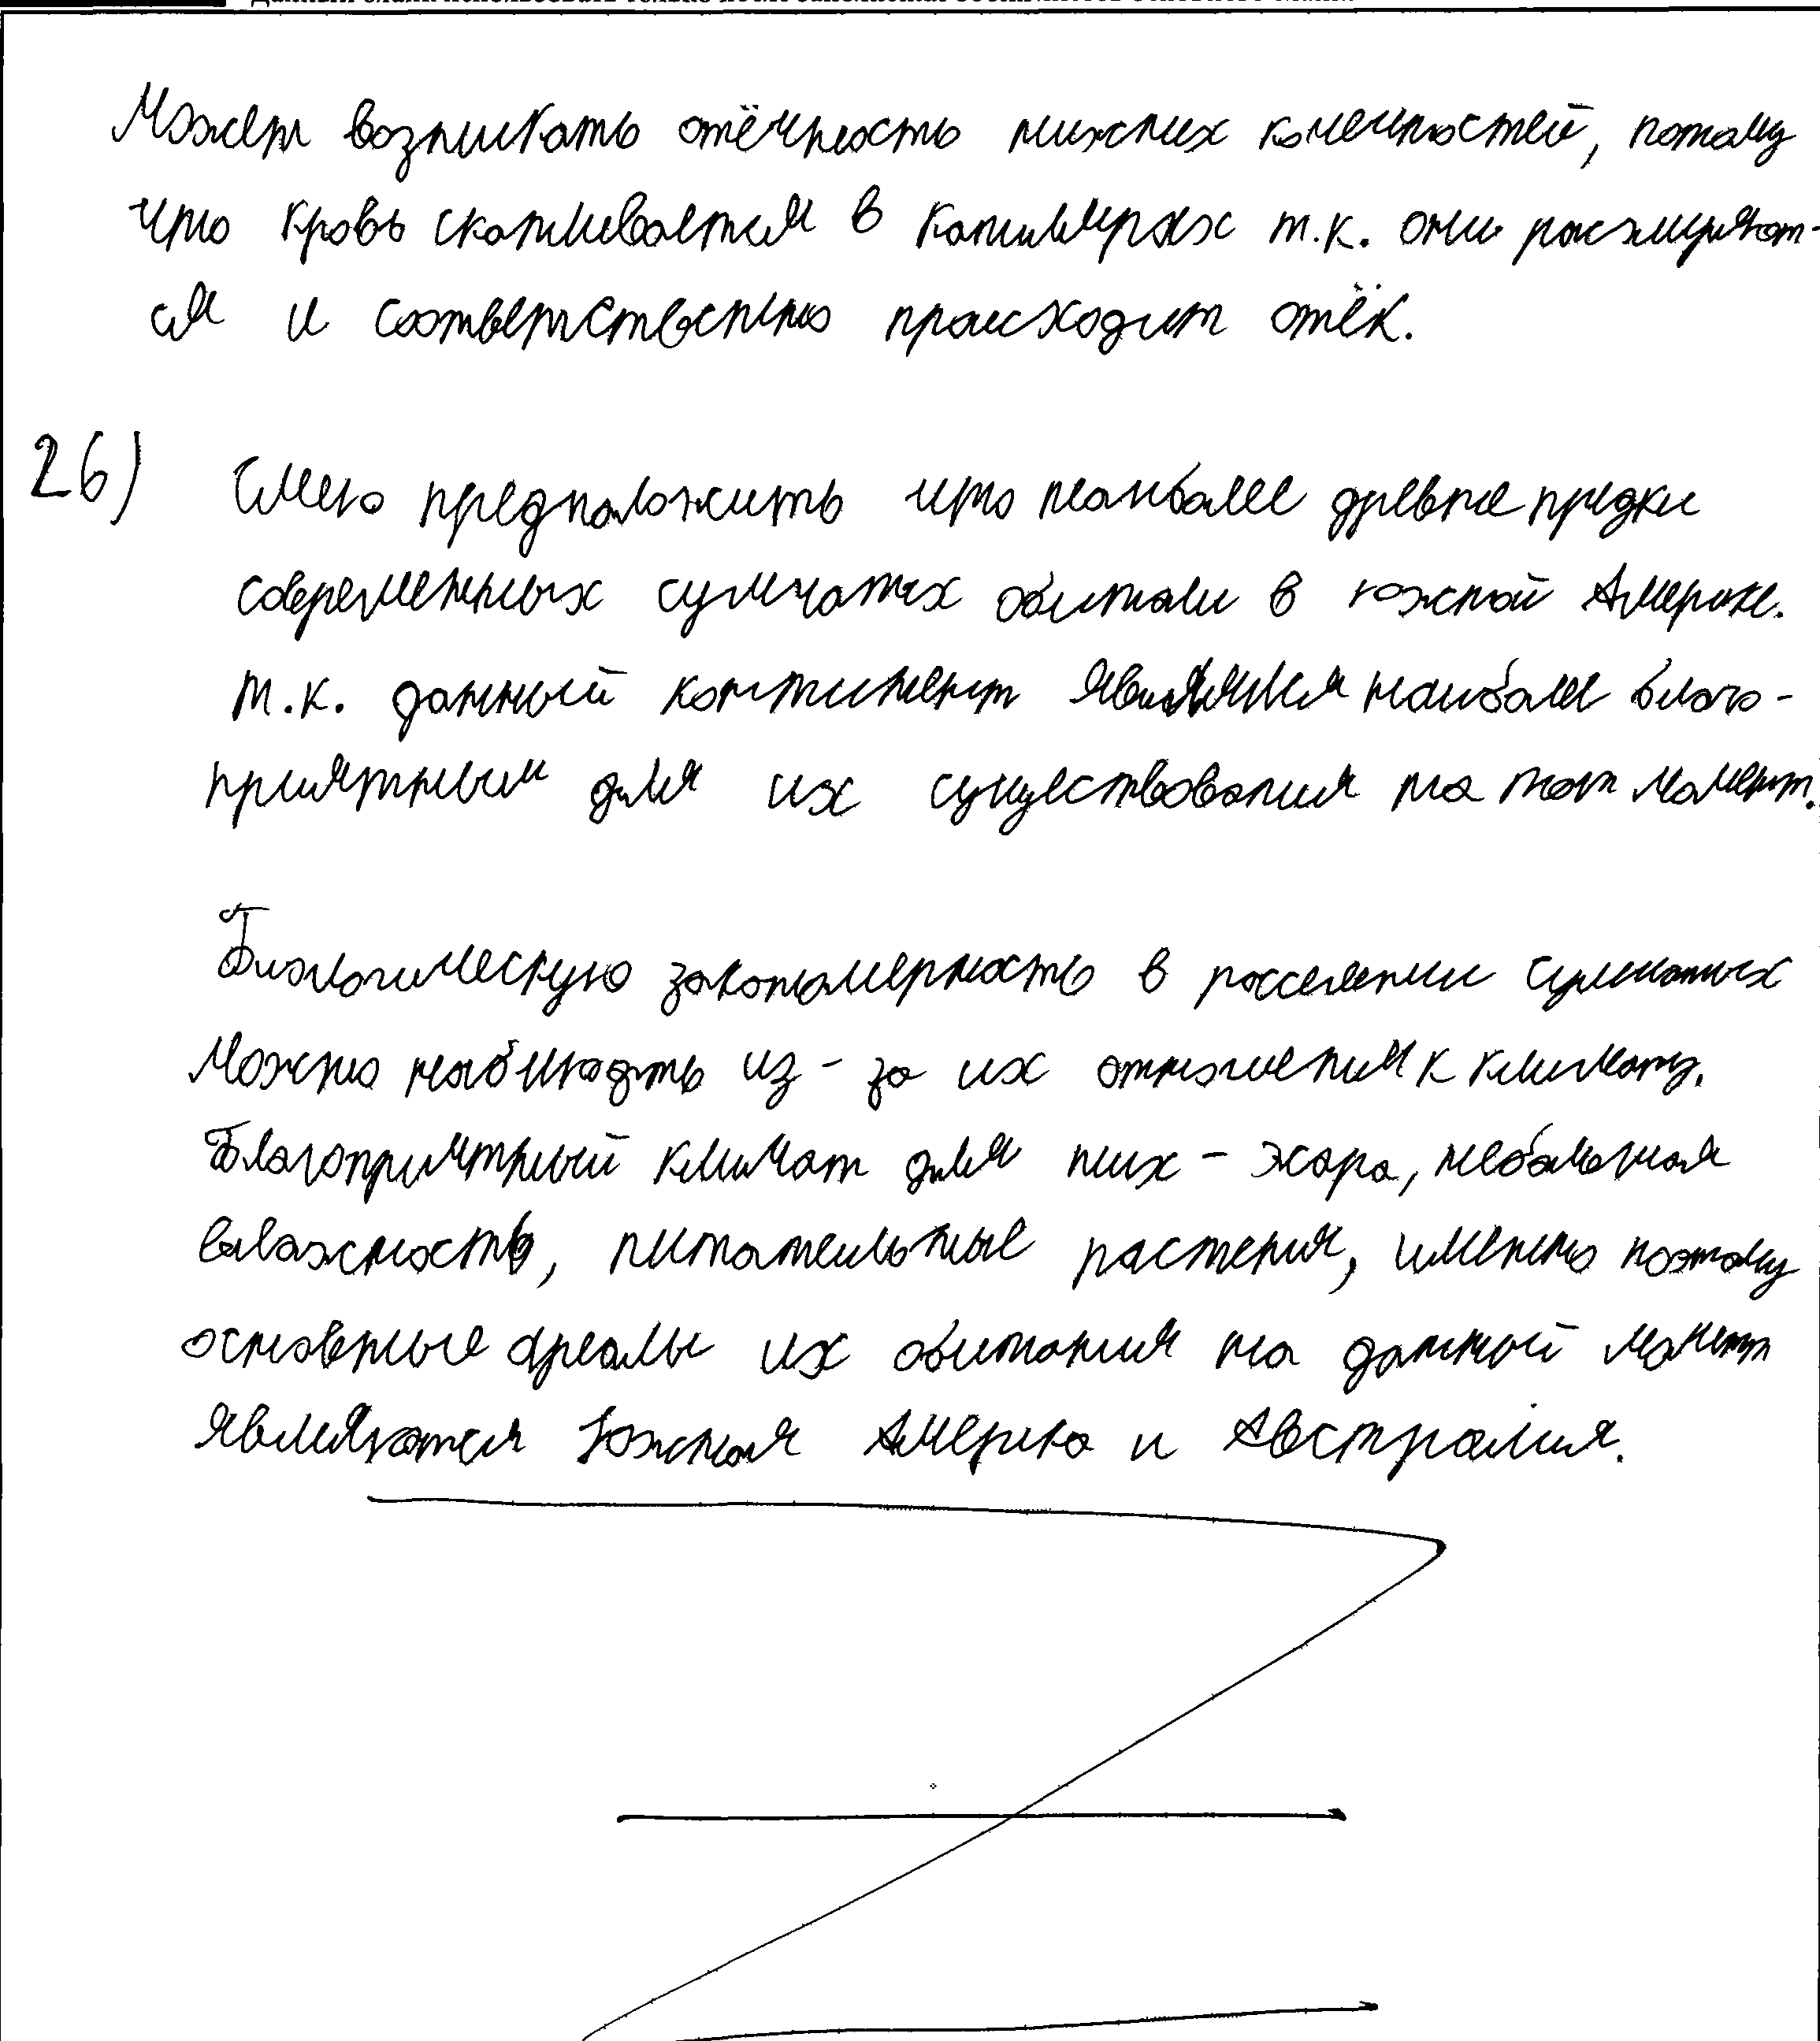 Может возникать отёчность нижних конечностей, потому
что кровь скапливается в капиллярах т.к. они расширяют-
ся и соответственно происходит отёк.
26) Смею предположить что наиболее древние предки
современных сумчатых обитали в южной Америке.
т.к. данный континент являлся наиболее благо-
приятным для их существования на тот момент.
Биологическую закономерность в расселении сумчатых
можно наблюдать из-за их отношения к климату.
Благоприятный климат для них - жара, небольшая
влажность, питательные растения, именно поэтому
основные ареалы их обитания на данный момент
являются Южная Америка и Австралия.